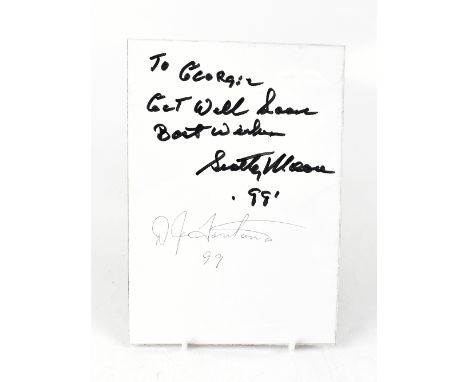 To Georgie
Get Well Soon
Best Wishes
Scotty Moore
. 99'
D J Fontana
99